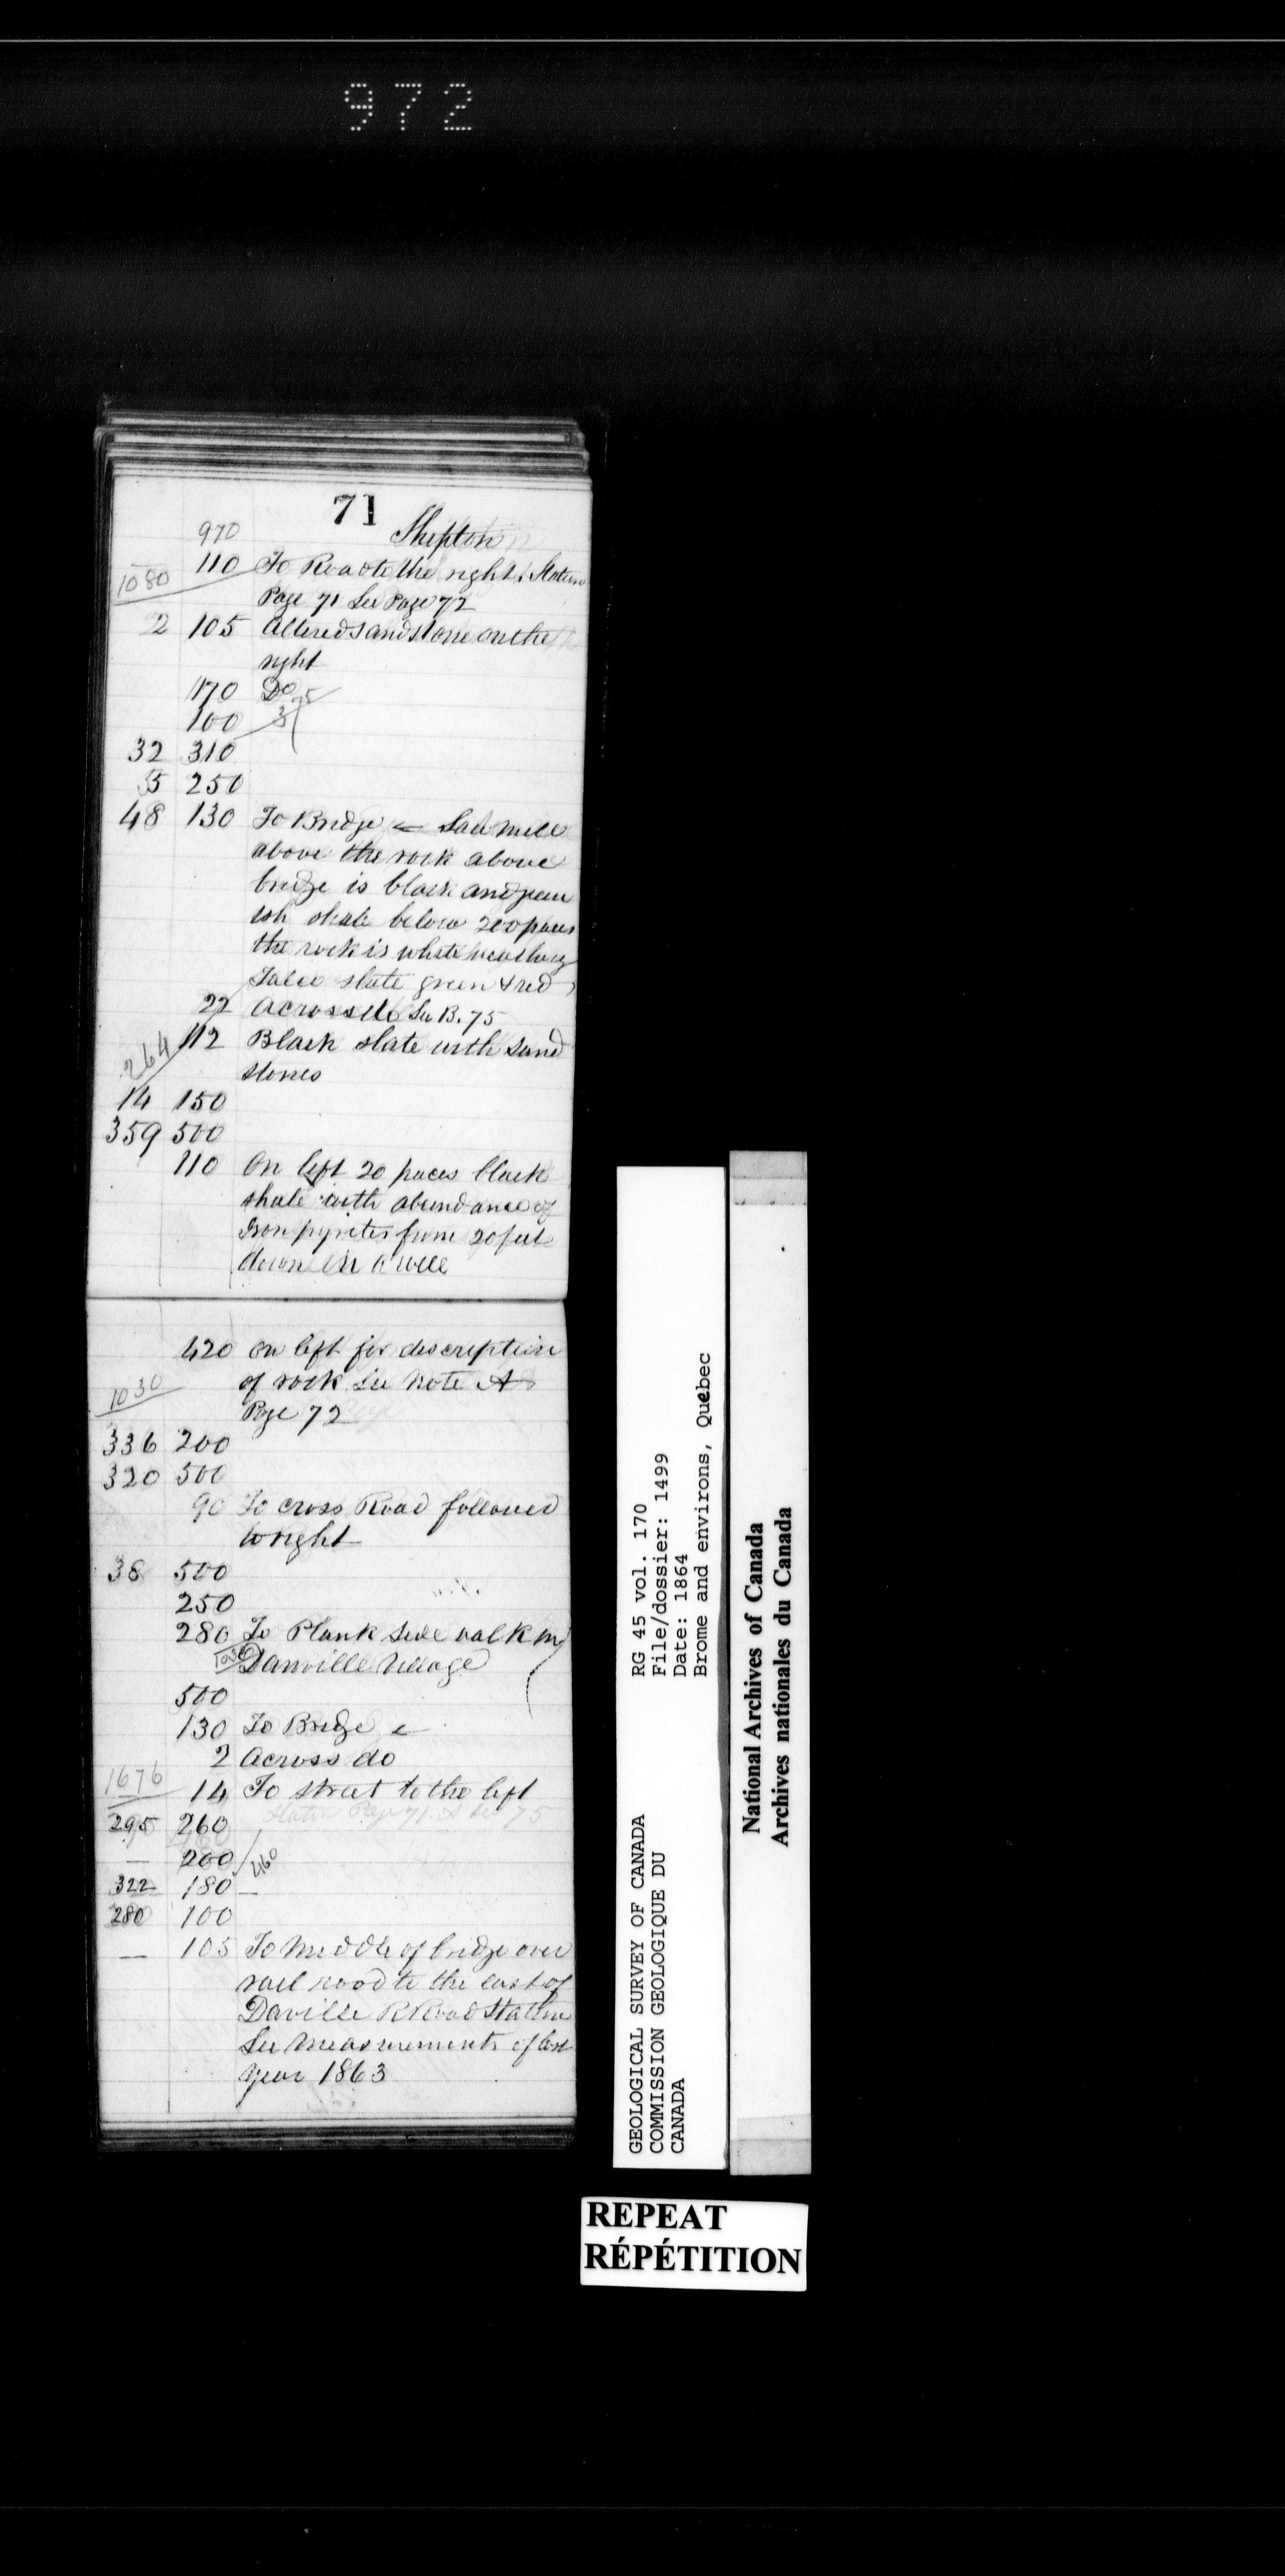 972
71
970 Shipton
110 To Road to the right. Station
1080
Page 71 See Page 72
2 105 Altered sandstone on the
right
170 Do
100
32 310
5 250
48 130 To Bridge ← Saw mill
above the rock above
bridge is black and green
ish shale below 200 paces
the rock is white weathering
Talco slate green & red
22 Across do See B. 75
264 112 Black slate with sand
stones
14 150
359 500
110 On left 20 paces black
shale with abundance of
Iron pyrites from 20 feet
down in a well
420 on left for description
of rock See Note A
1030
Page 72
336 200
320 500
90 To cross Road followed
to right
38 500
250
280 To Plank Side walk in
1030 Danville Village
500
130 To Bridge ←
2 Across do
1676
14 To street to the left
Station Page 71. A See 75
295 260
— 200 460
322 180 —
280 100
— 105 To Middle of bridge over
rail road to the east of
Daville R Road Station
See Measurements of last
year 1863
GEOLOGICAL SURVEY OF CANADA
COMMISSION GEOLOGIQUE DU
CANADA
RG 45 vol. 170
File/dossier: 1499
Date: 1864
Brome and environs, Quebec
National Archives of Canada
Archives nationales du Canada
REPEAT
RÉPÉTITION